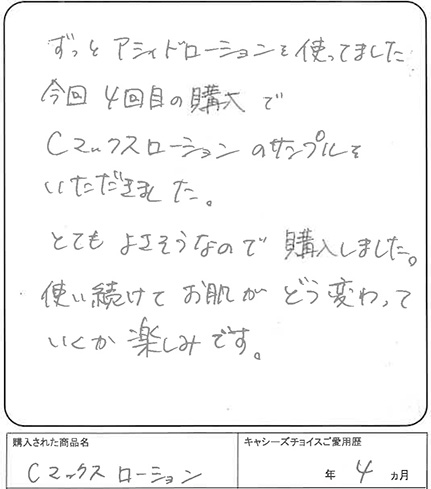 ずっと アシィドローションを使ってました
今回 4回目の購入で
Cマックスローションのサンプルを
いただきました。
とても よさそうなので 購入しました。
使い続けて お肌が どう変わって
いくか 楽しみです。
購入された商品名
キャシーズチョイスご愛用歴
Cマックス ローション
年 4 ヵ月